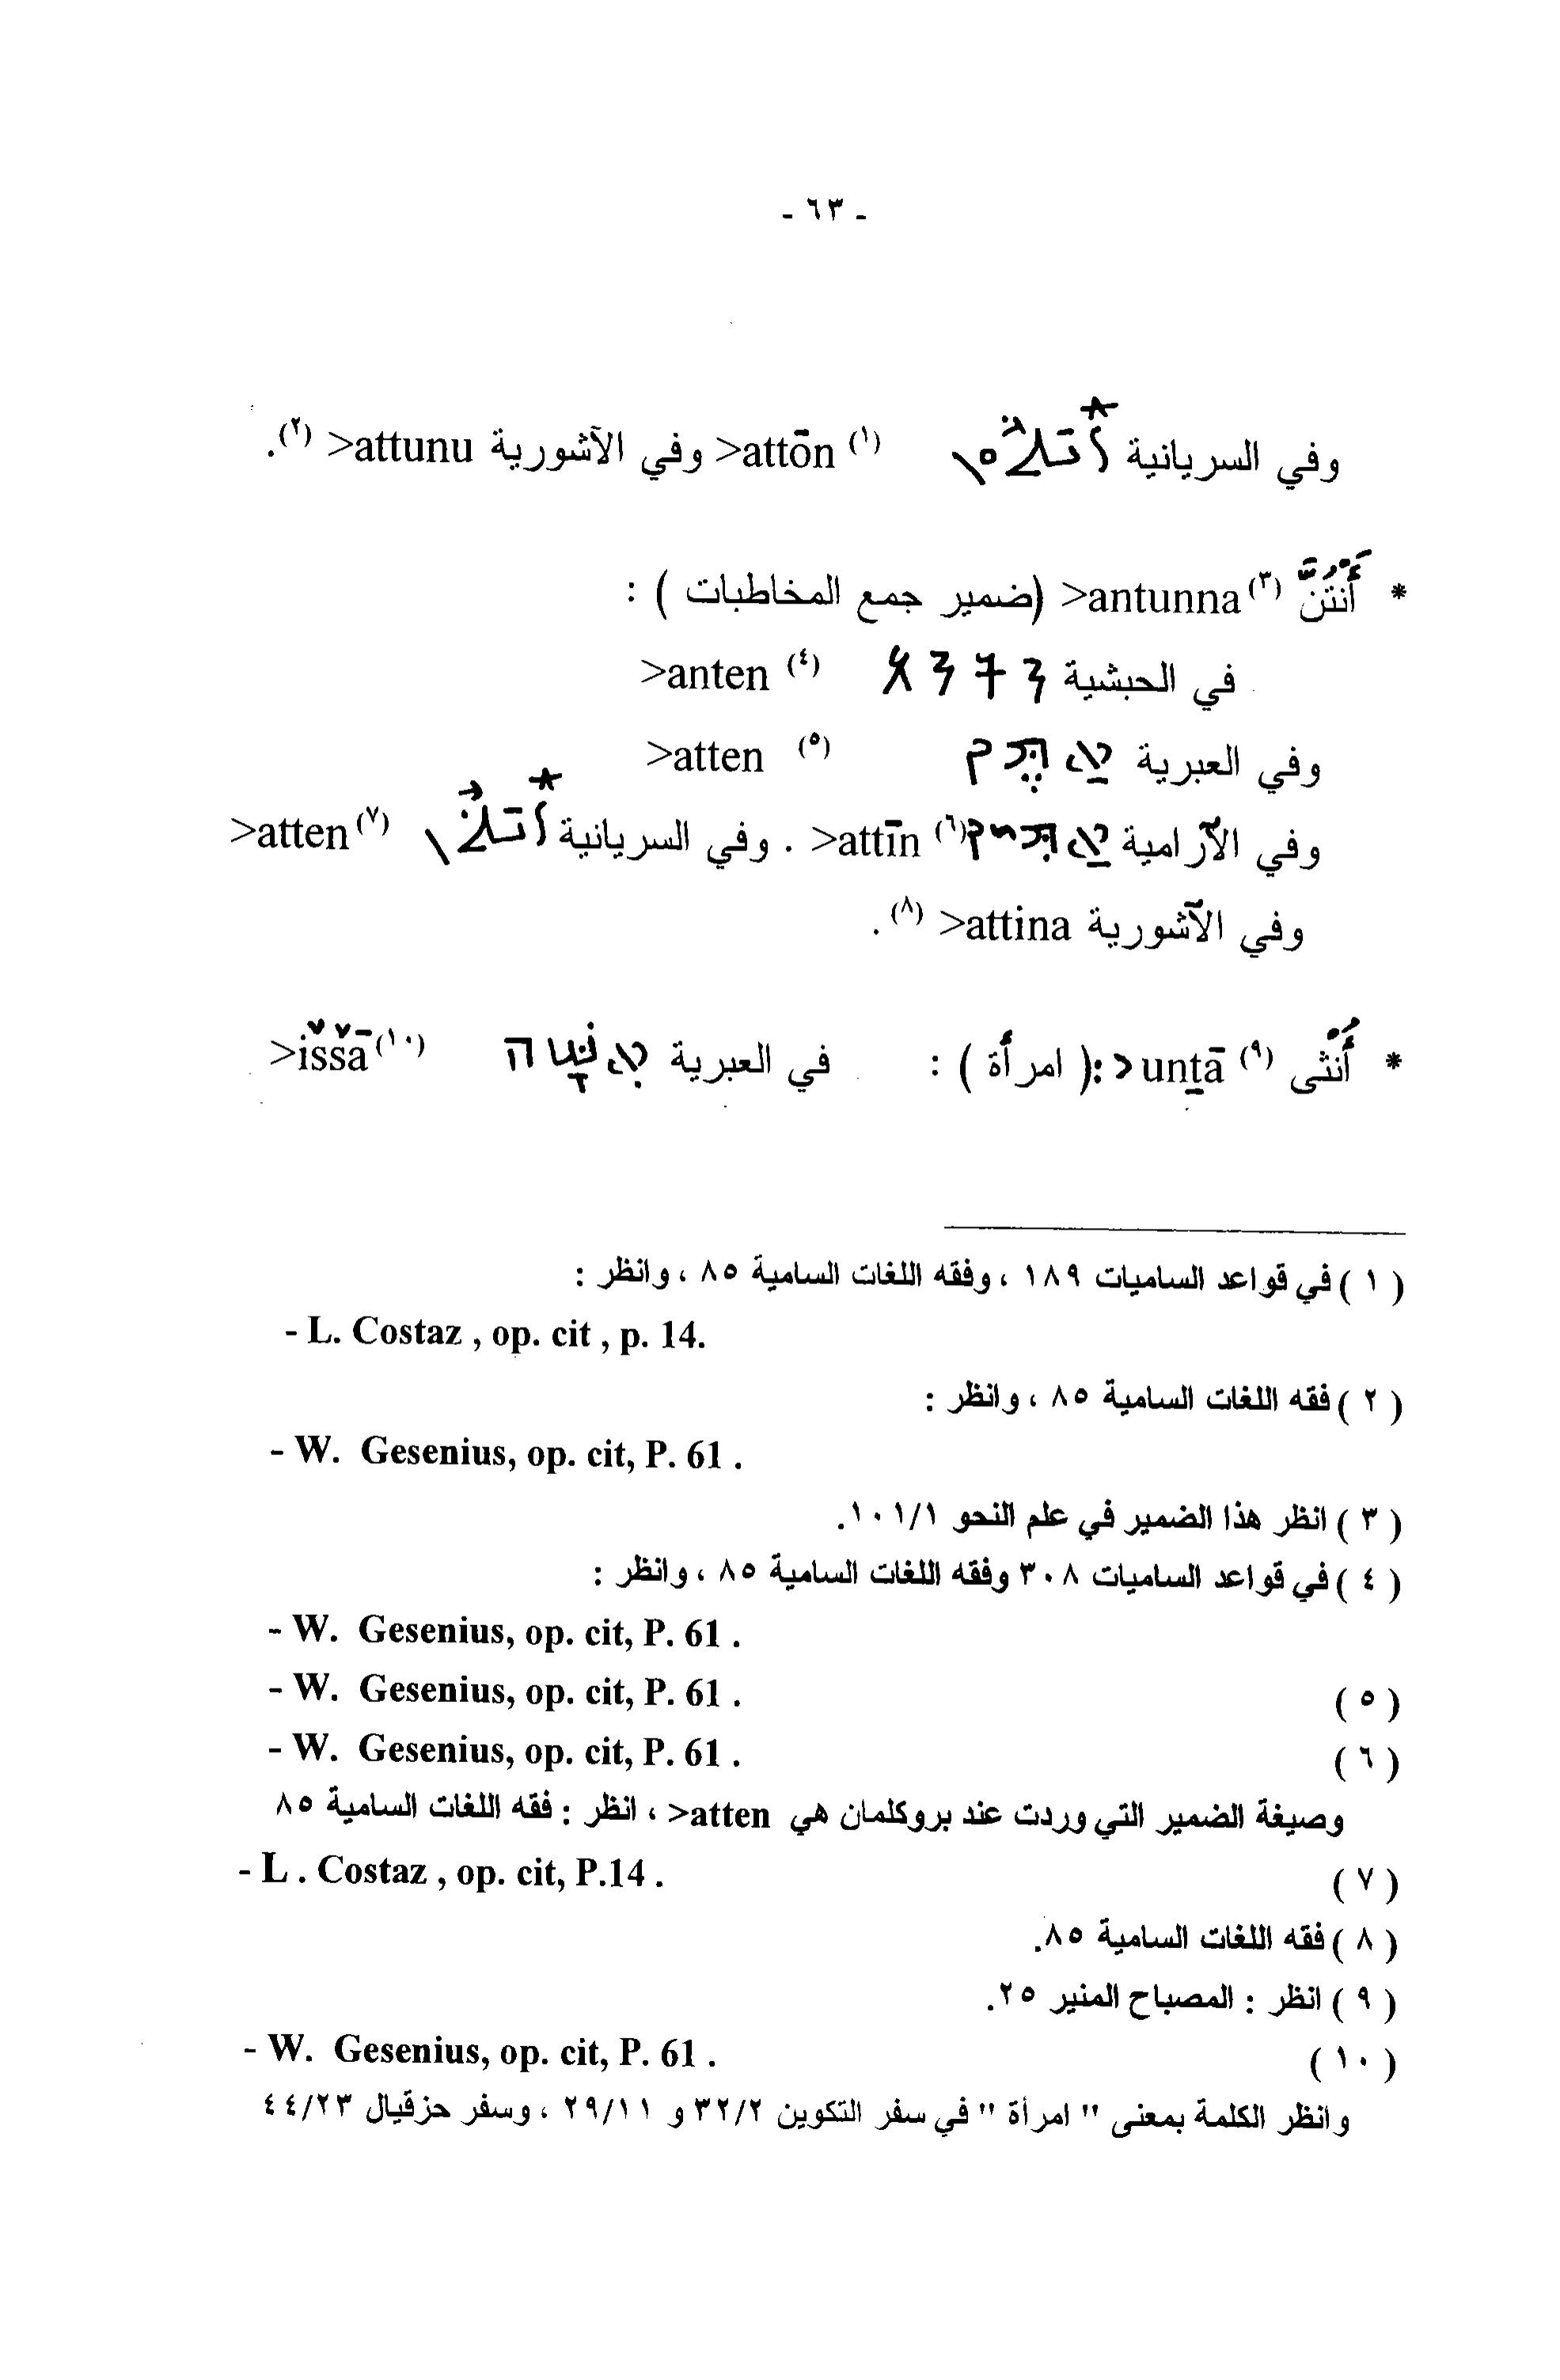 - ٦٣ -
وفي السريانية (١) >attōn وفي الآشورية >attunu (٢).
* أَنْتُنَّ (٣) >antunna (ضمير جمع المخاطبات ) :
في الحبشية (٤) >anten
وفي العبرية (٥) >atten
وفي الآرامية (٦) >attīn . وفي السريانية (٧) >atten
وفي الآشورية >attina (٨) .
* أُنْثى (٩) >unṯā :( امرأة ) : في العبرية (١٠) >iššā
( ١ ) في قواعد الساميات ١٨٩ ، وفقه اللغات السامية ٨٥ ، وانظر :
- L. Costaz , op. cit , p. 14.
( ٢ ) فقه اللغات السامية ٨٥ ، وانظر :
- W. Gesenius, op. cit, P. 61 .
( ٣ ) انظر هذا الضمير في علم النحو ١٠١/١.
( ٤ ) في قواعد الساميات ٣٠٨ وفقه اللغات السامية ٨٥ ، وانظر :
- W. Gesenius, op. cit, P. 61 .
( ٥ ) - W. Gesenius, op. cit, P. 61 .
( ٦ ) - W. Gesenius, op. cit, P. 61 .
وصيغة الضمير التي وردت عند بروكلمان هي >atten ، انظر : فقه اللغات السامية ٨٥
( ٧ ) - L . Costaz , op. cit, P.14 .
( ٨ ) فقه اللغات السامية ٨٥.
( ٩ ) انظر : المصباح المنير ٢٥.
( ١٠ ) - W. Gesenius, op. cit, P. 61 .
وانظر الكلمة بمعنى " امرأة " في سفر التكوين ٣٢/٢ و ٢٩/١١ ، وسفر حزقيال ٤٤/٢٣